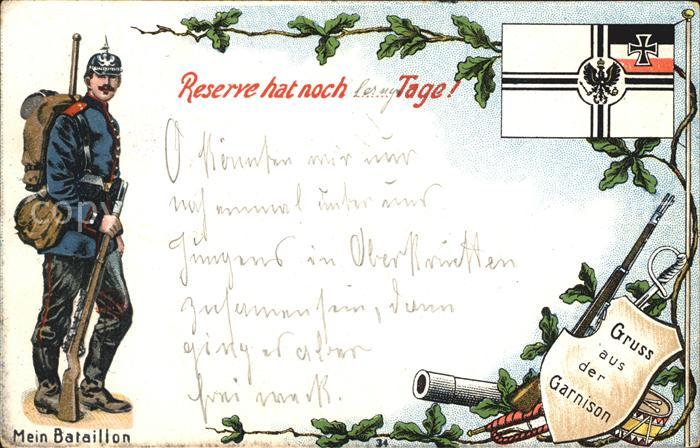 Reserve hat noch Tage!
O könnten wir nur
noch einmal unter uns
Jungens in Oberstrütten
zusamensein, dann
ging es aber
frei weck.
Gruss
aus
der
Garnison
Mein Bataillon
34